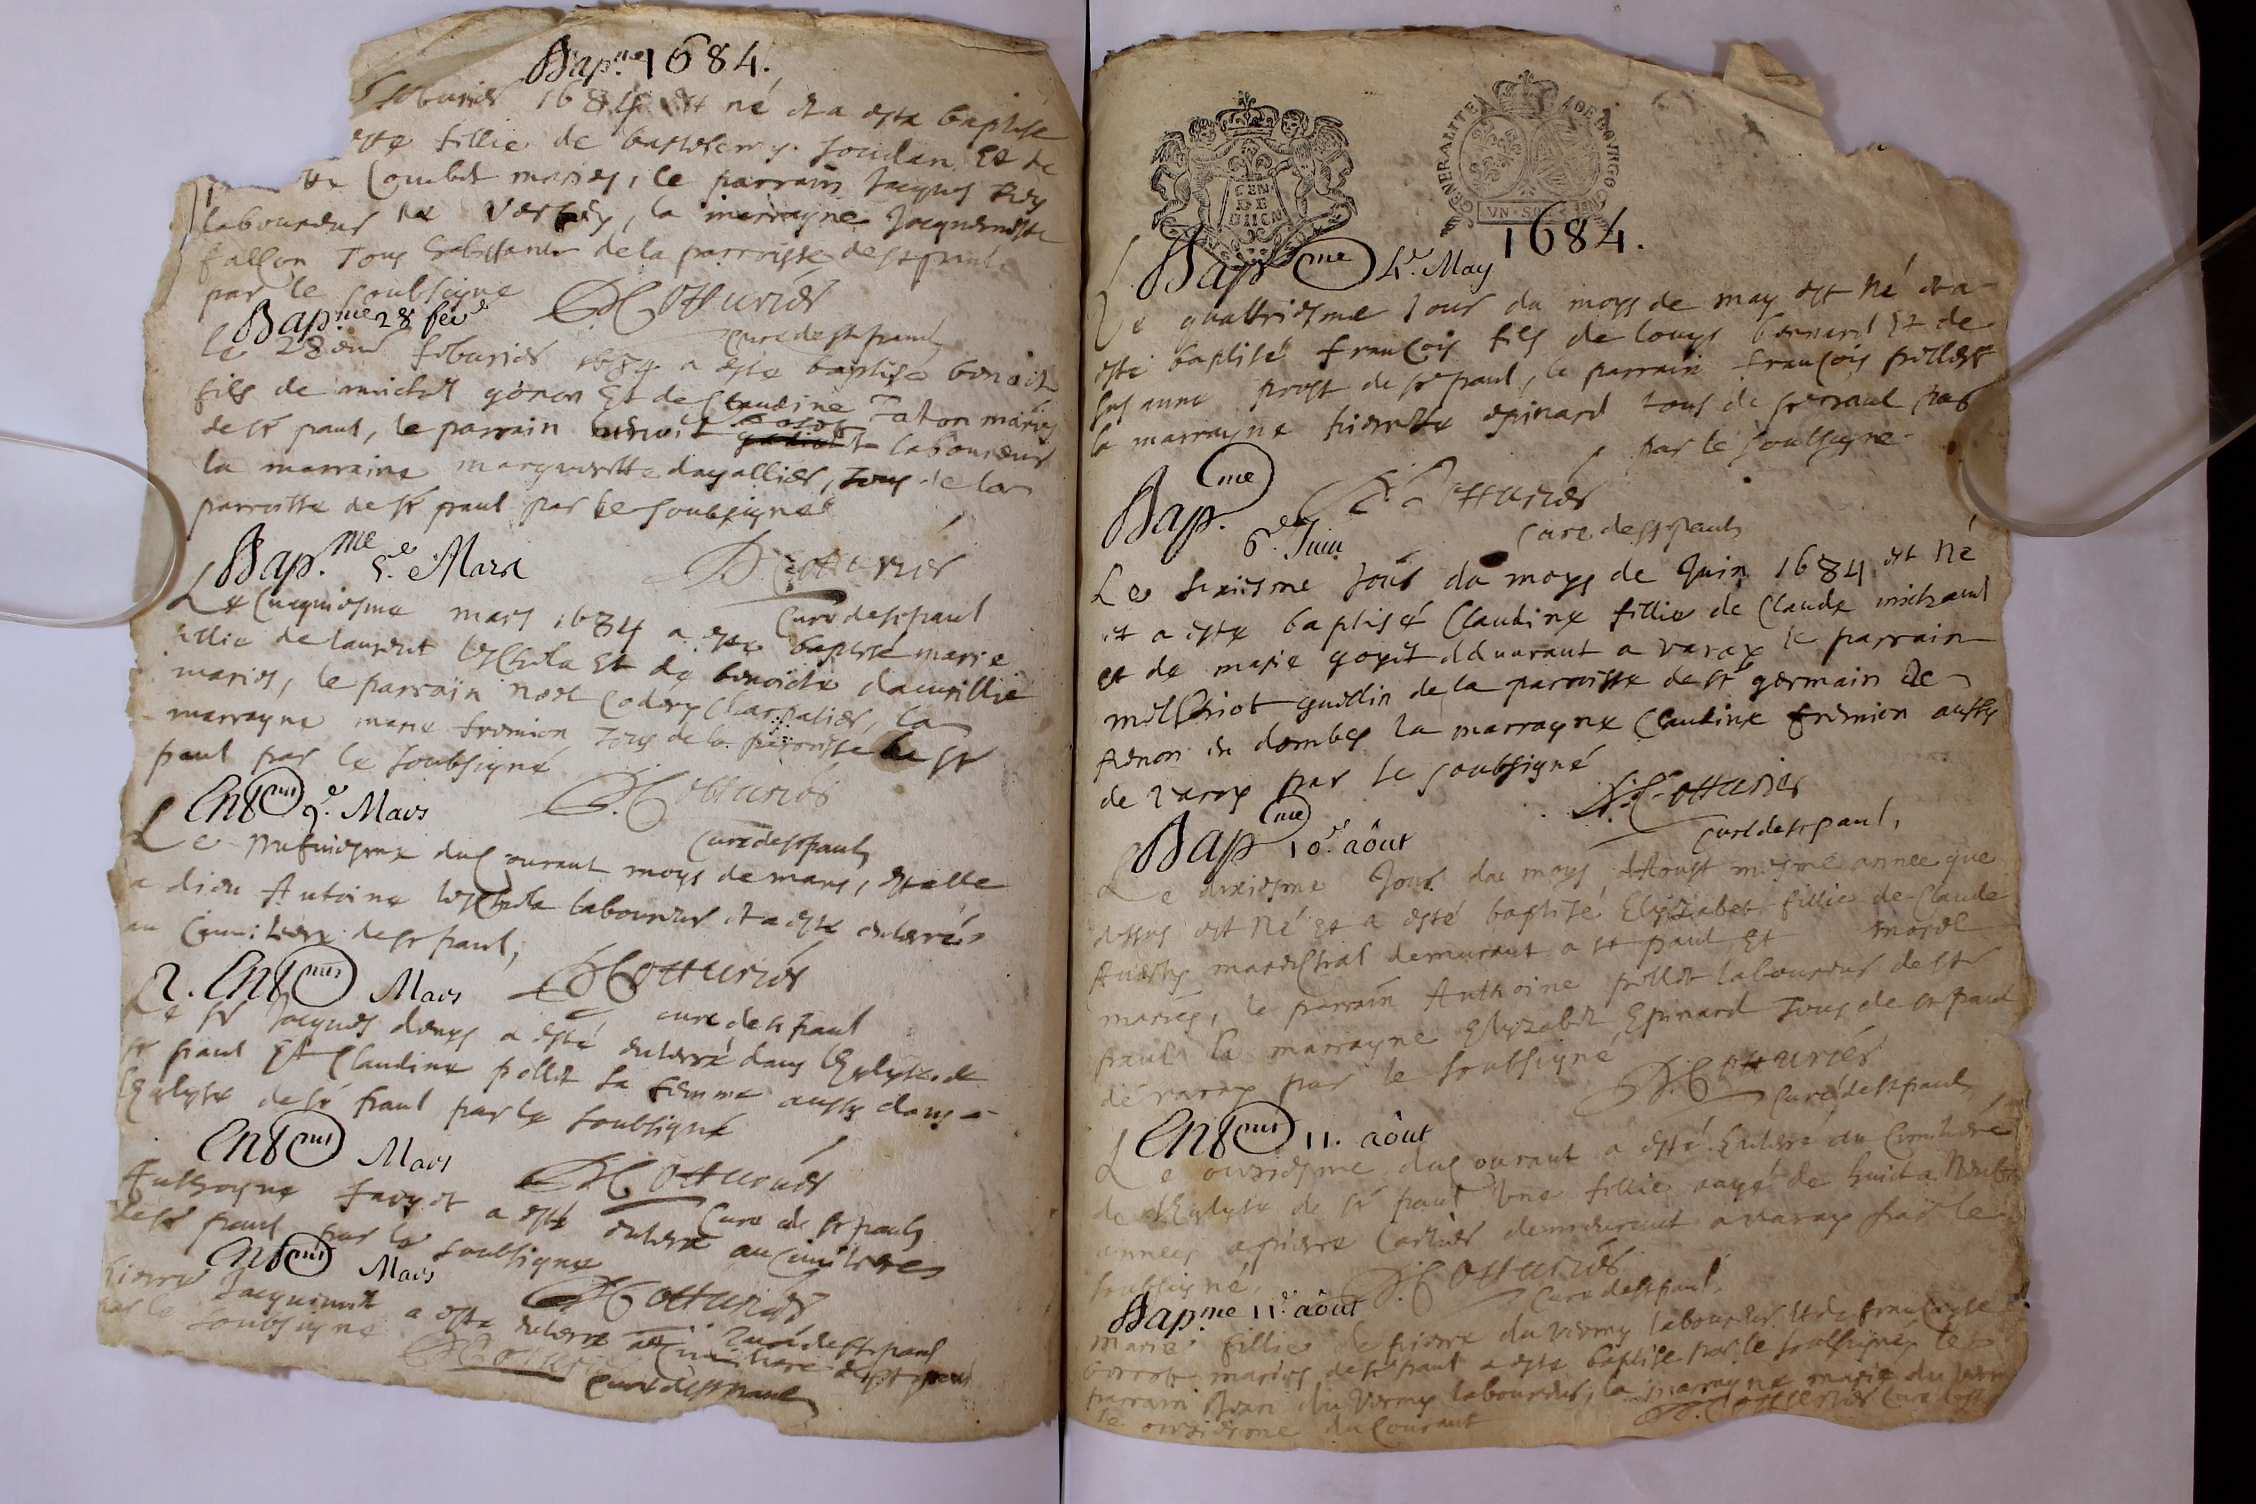 Bap.me 1684.
febvrier 1684 est né et a esté baptisé
fillie de bartelemy Joudan Et de
Goubet mariés, le parrain Jacques Rey
laboureur de la marrayne Jacquemette
fallon Tous habittants de la parroisse de st paul
par le soubsigné
D. Cotturier
Curé de st paul
Bap.me 28 fév.e
le 28eme febvrier 1684 a esté baptisé benoist
fils de michel génon Et de Claudine Taton mariés
de st paul, le parrain benoist laboureur
la marraine margueritte dagallier, Tous de la
parroisse de st paul par le soubsigné
D. Cotturier
Curé de st paul
Bap.me 5.e Mars
Le cinquiesme mars 1684 a esté baptisé marie
fillie de laurent et de benoiste
mariés, le parrain noel Cadory Charpatier, la
marrayne marie fremion Tous de la parroisse de st
paul par le soubsigné
D. Cotturier
Curé de st paul
Ent.mt 9.e Mars
Le neufviesme du Courant moys de mars, est allé
a dieu Antoine laboureur et a esté enterré
au Cimitiere de st paul,
D. Cotturier
curé de st paul
2. Ent.mts Mars
Le sr Jacques denys a esté enterré dans l'Eglyse de
st paul Et Claudine pollet sa femme aussy dans
l'Eglyse de st paul par le soubsigné
D. Cotturier
Curé de st paul
Ent.mt Mars
Anthoyne a esté enterré au Cimitiere
de st paul par le soubsigné
D. Cotturier
Curé de st paul
Ent.mt Mars
pierre Jacquemet a esté enterré au Cimitiere de st paul
par le soubsigné
D. Cotturier
Curé de st paul
GEN DE DIION
GENERALITE DE BOVRGOGNE
VN SOL
1684.
Bap.me 4.e May
Le quattriesme Jour du moys de may est né et a
esté baptisé françois fils de louys bernard Et de
susanne prost de st paul, le parrain françois pollet
la marrayne pierrette epinard tous de st paul
par le soubsigné
D. Cotturier
Curé de st paul
Bap.me 6.e Juin
Le sixiesme Jour du moys de Juin 1684 est né
et a esté baptisé Claudine fillie de Claude michaud
et de marie goyet demeurant a varax le parrain
melchiot guedin de la parroisse de st germain de
Renon en dombes la marrayne Claudine fremion aussy
de varax par le soubsigné
D. Cotturier
curé de st paul,
Bap.me 10.e aôut
Le dixiesme Jour du moys d'Aoust mesme année que
dessus est né Et a esté baptisé Elyzabet fillie de Claude
mareschal demeurant a st paul Et morel
mariés, le parrain Anthoine pollet laboureur de st
paul la marrayne Elyzabet Epinard Tous de st paul
de varax par le soubsigné
D. Cotturier
Curé de st paul
Ent.mt 11. aôut
Le onziesme du Courant a esté Enterré au Cimitiere
de l'Eglyse de st paul Une fillie aagé de huict a neufs
années a pierre Cartier demeurant a varax par le
soubsigné,
D. Cotturier
Curé de st paul
Bap.me 11.e aôut
Marie fillie de pierre du verny laboureur Et de françoyse
mariés de st paul a esté baptisé par le soubsigné, le
parrain Jean du Verny laboureur, la marrayne marie du verny
le onziesme du Courant
D. Cotturier Curé de st